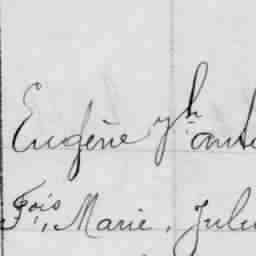 Eugène Jh ante
Fois, Marie, Jule